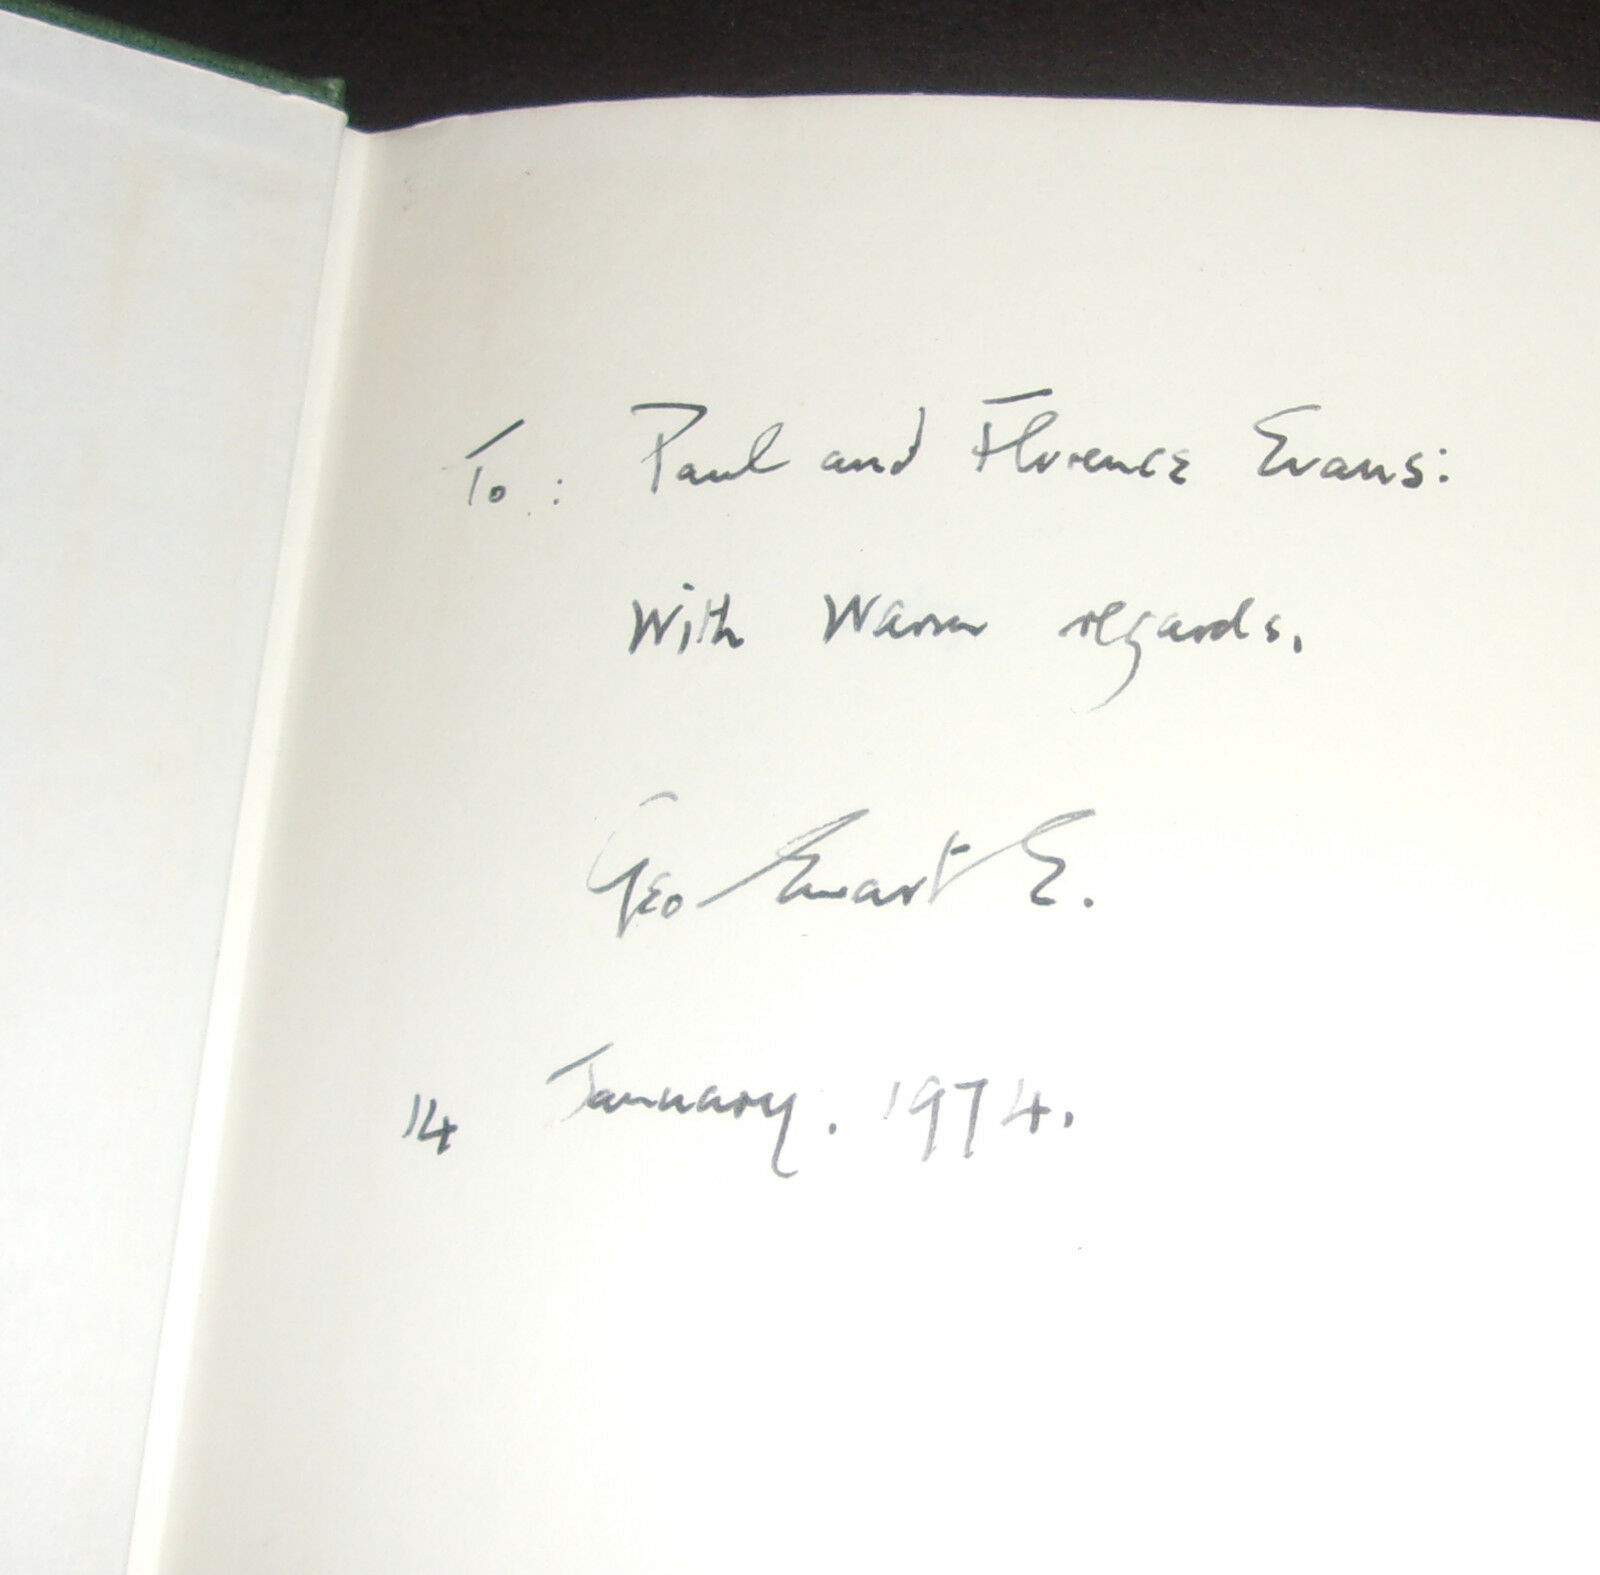 To: Paul and Florence Evans:
With Warm regards.
Geo Ewart E.
14 January. 1974.